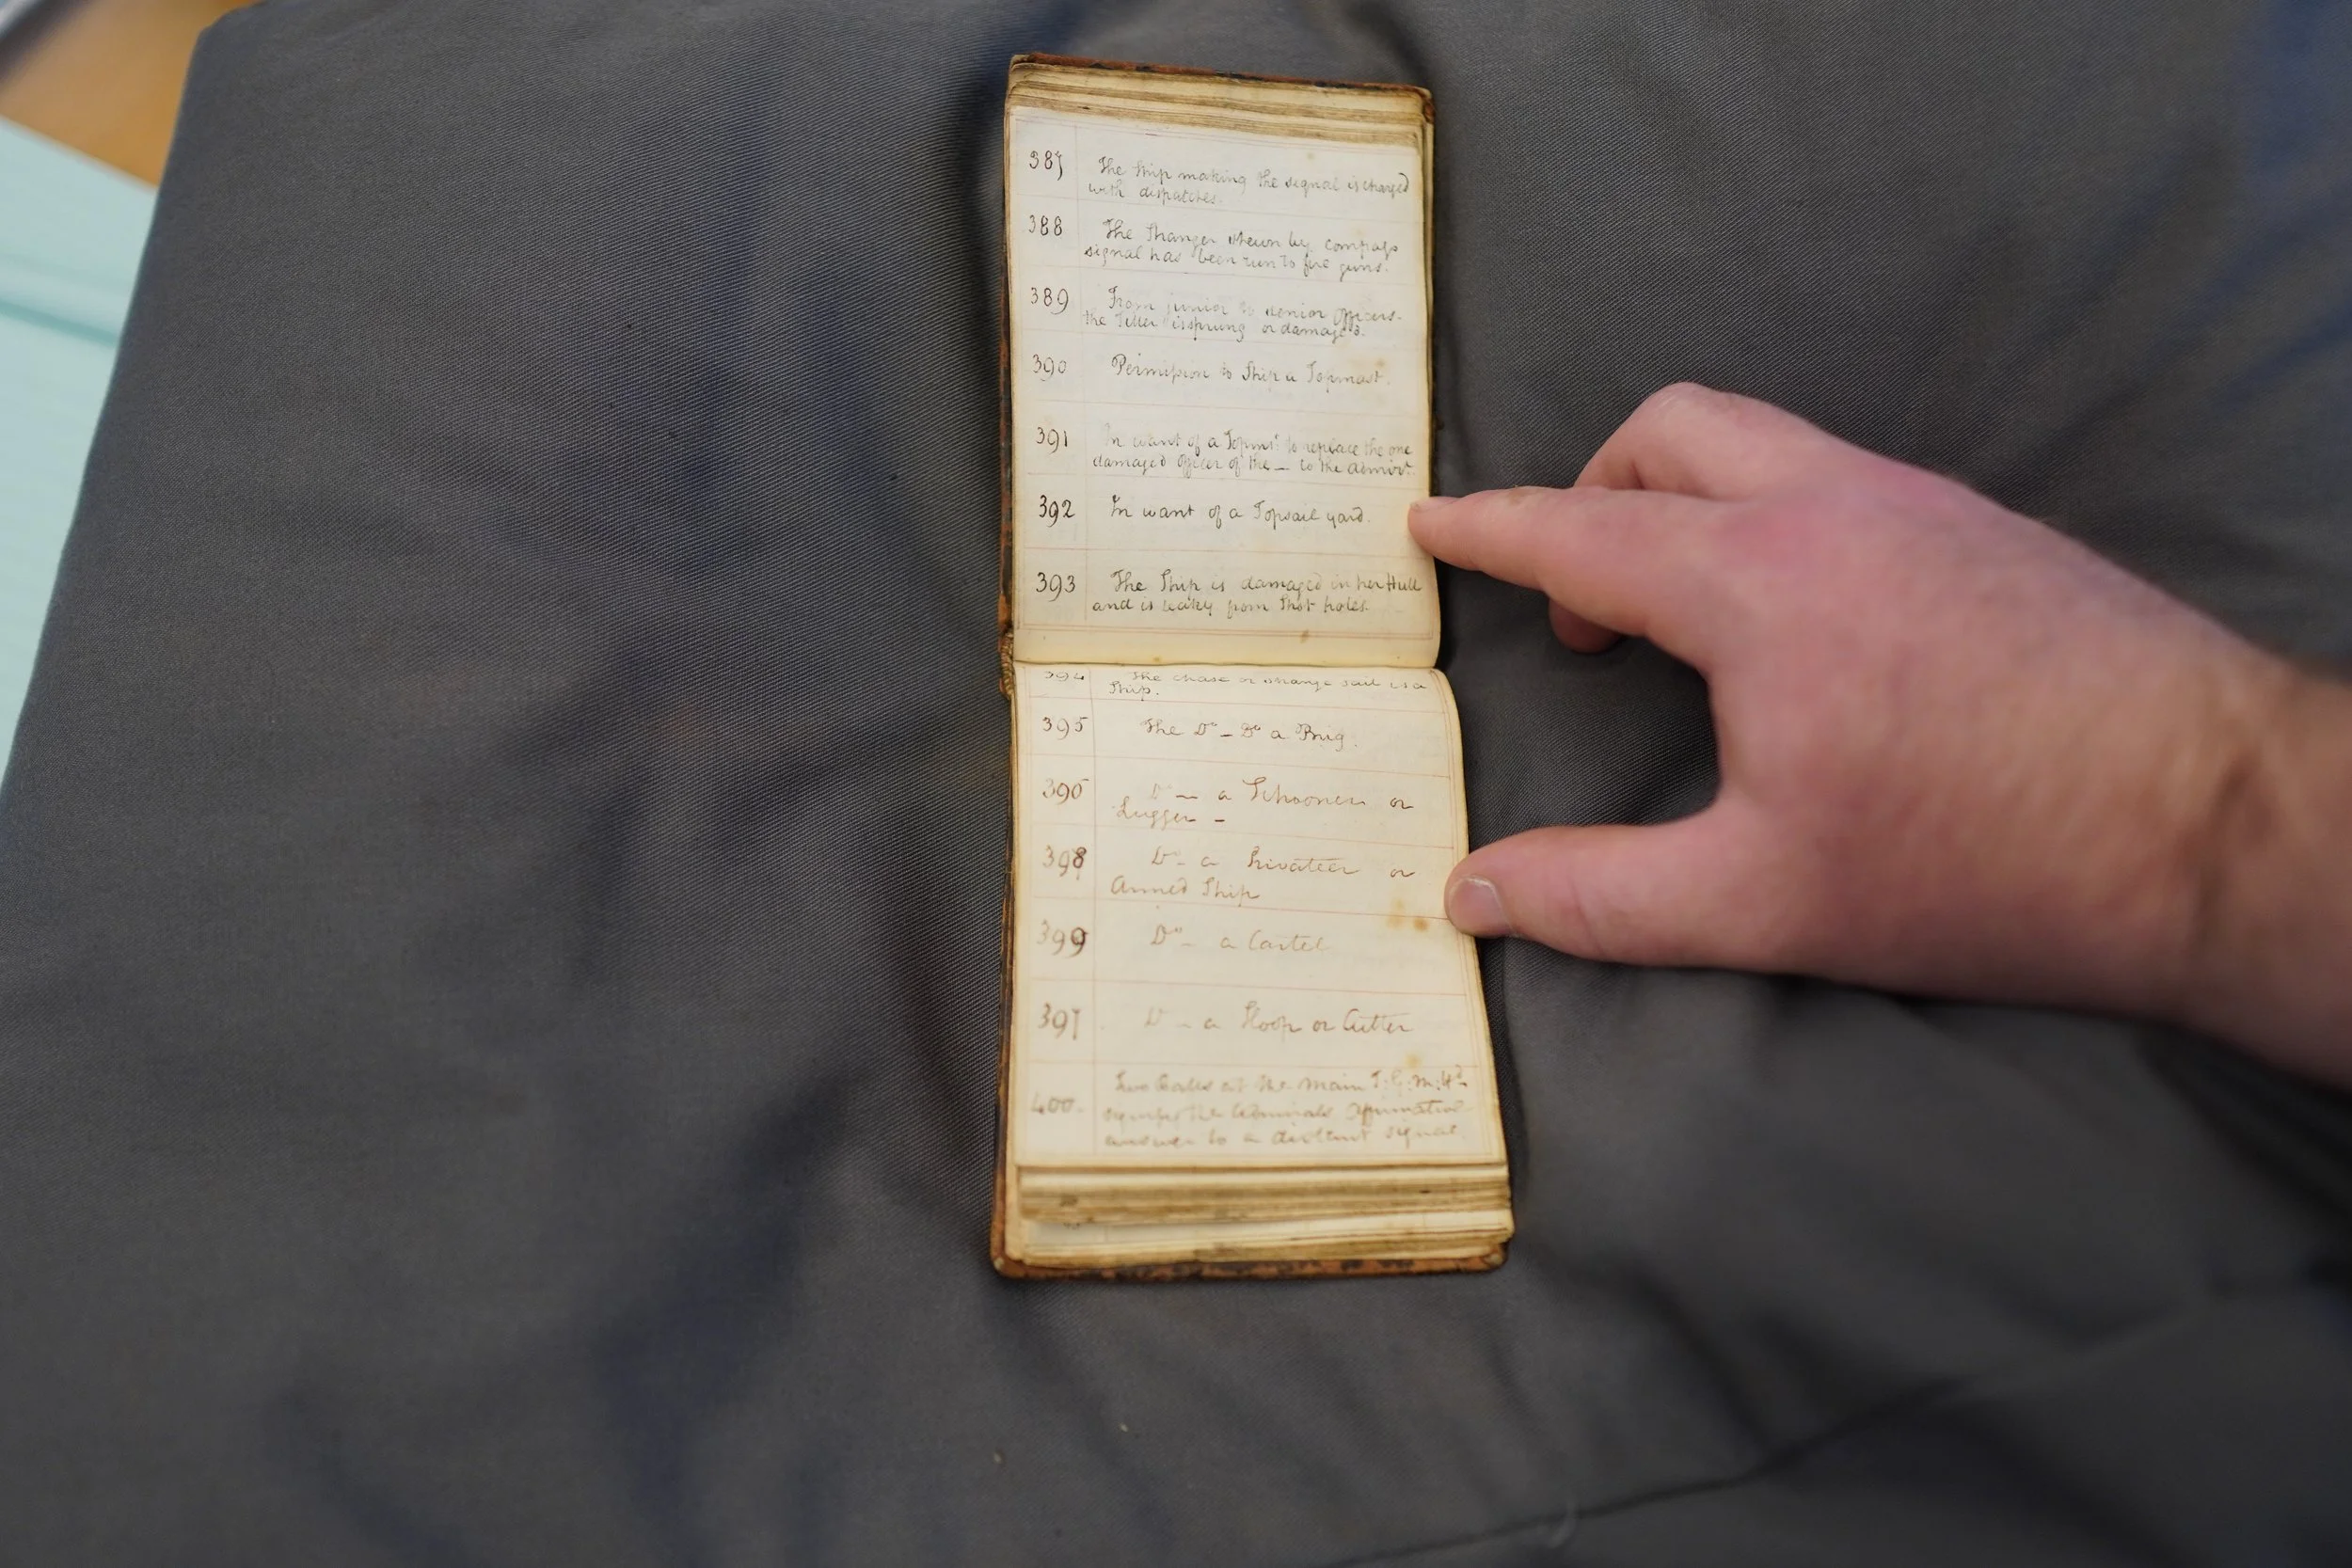 387 The Ship making the signal is charged
with dispatches.
388 The Stranger shewn by compass
signal has been run to fire guns.
389 From junior to senior officers.
the Tiller is sprung or damaged.
390 Permission to Ship a Topmast.
391 In want of a Topmt. to replace the one
damaged officer of the — to the
392 In want of a Topsail yard.
393 The Ship is damaged in her Hull
and is leaky from Shot holes.
394 The chase or strange sail is a
Ship.
395 The Do — Do a Brig.
396 Do — a Schooner or
Lugger —
398 Do — a Privateer or
Armed Ship
399 Do — a Cartel
397 Do — a Sloop or Cutter
400 Two Balls at the main T.G.m.Hd
the Admirals affirmative
answer to a distant signal.